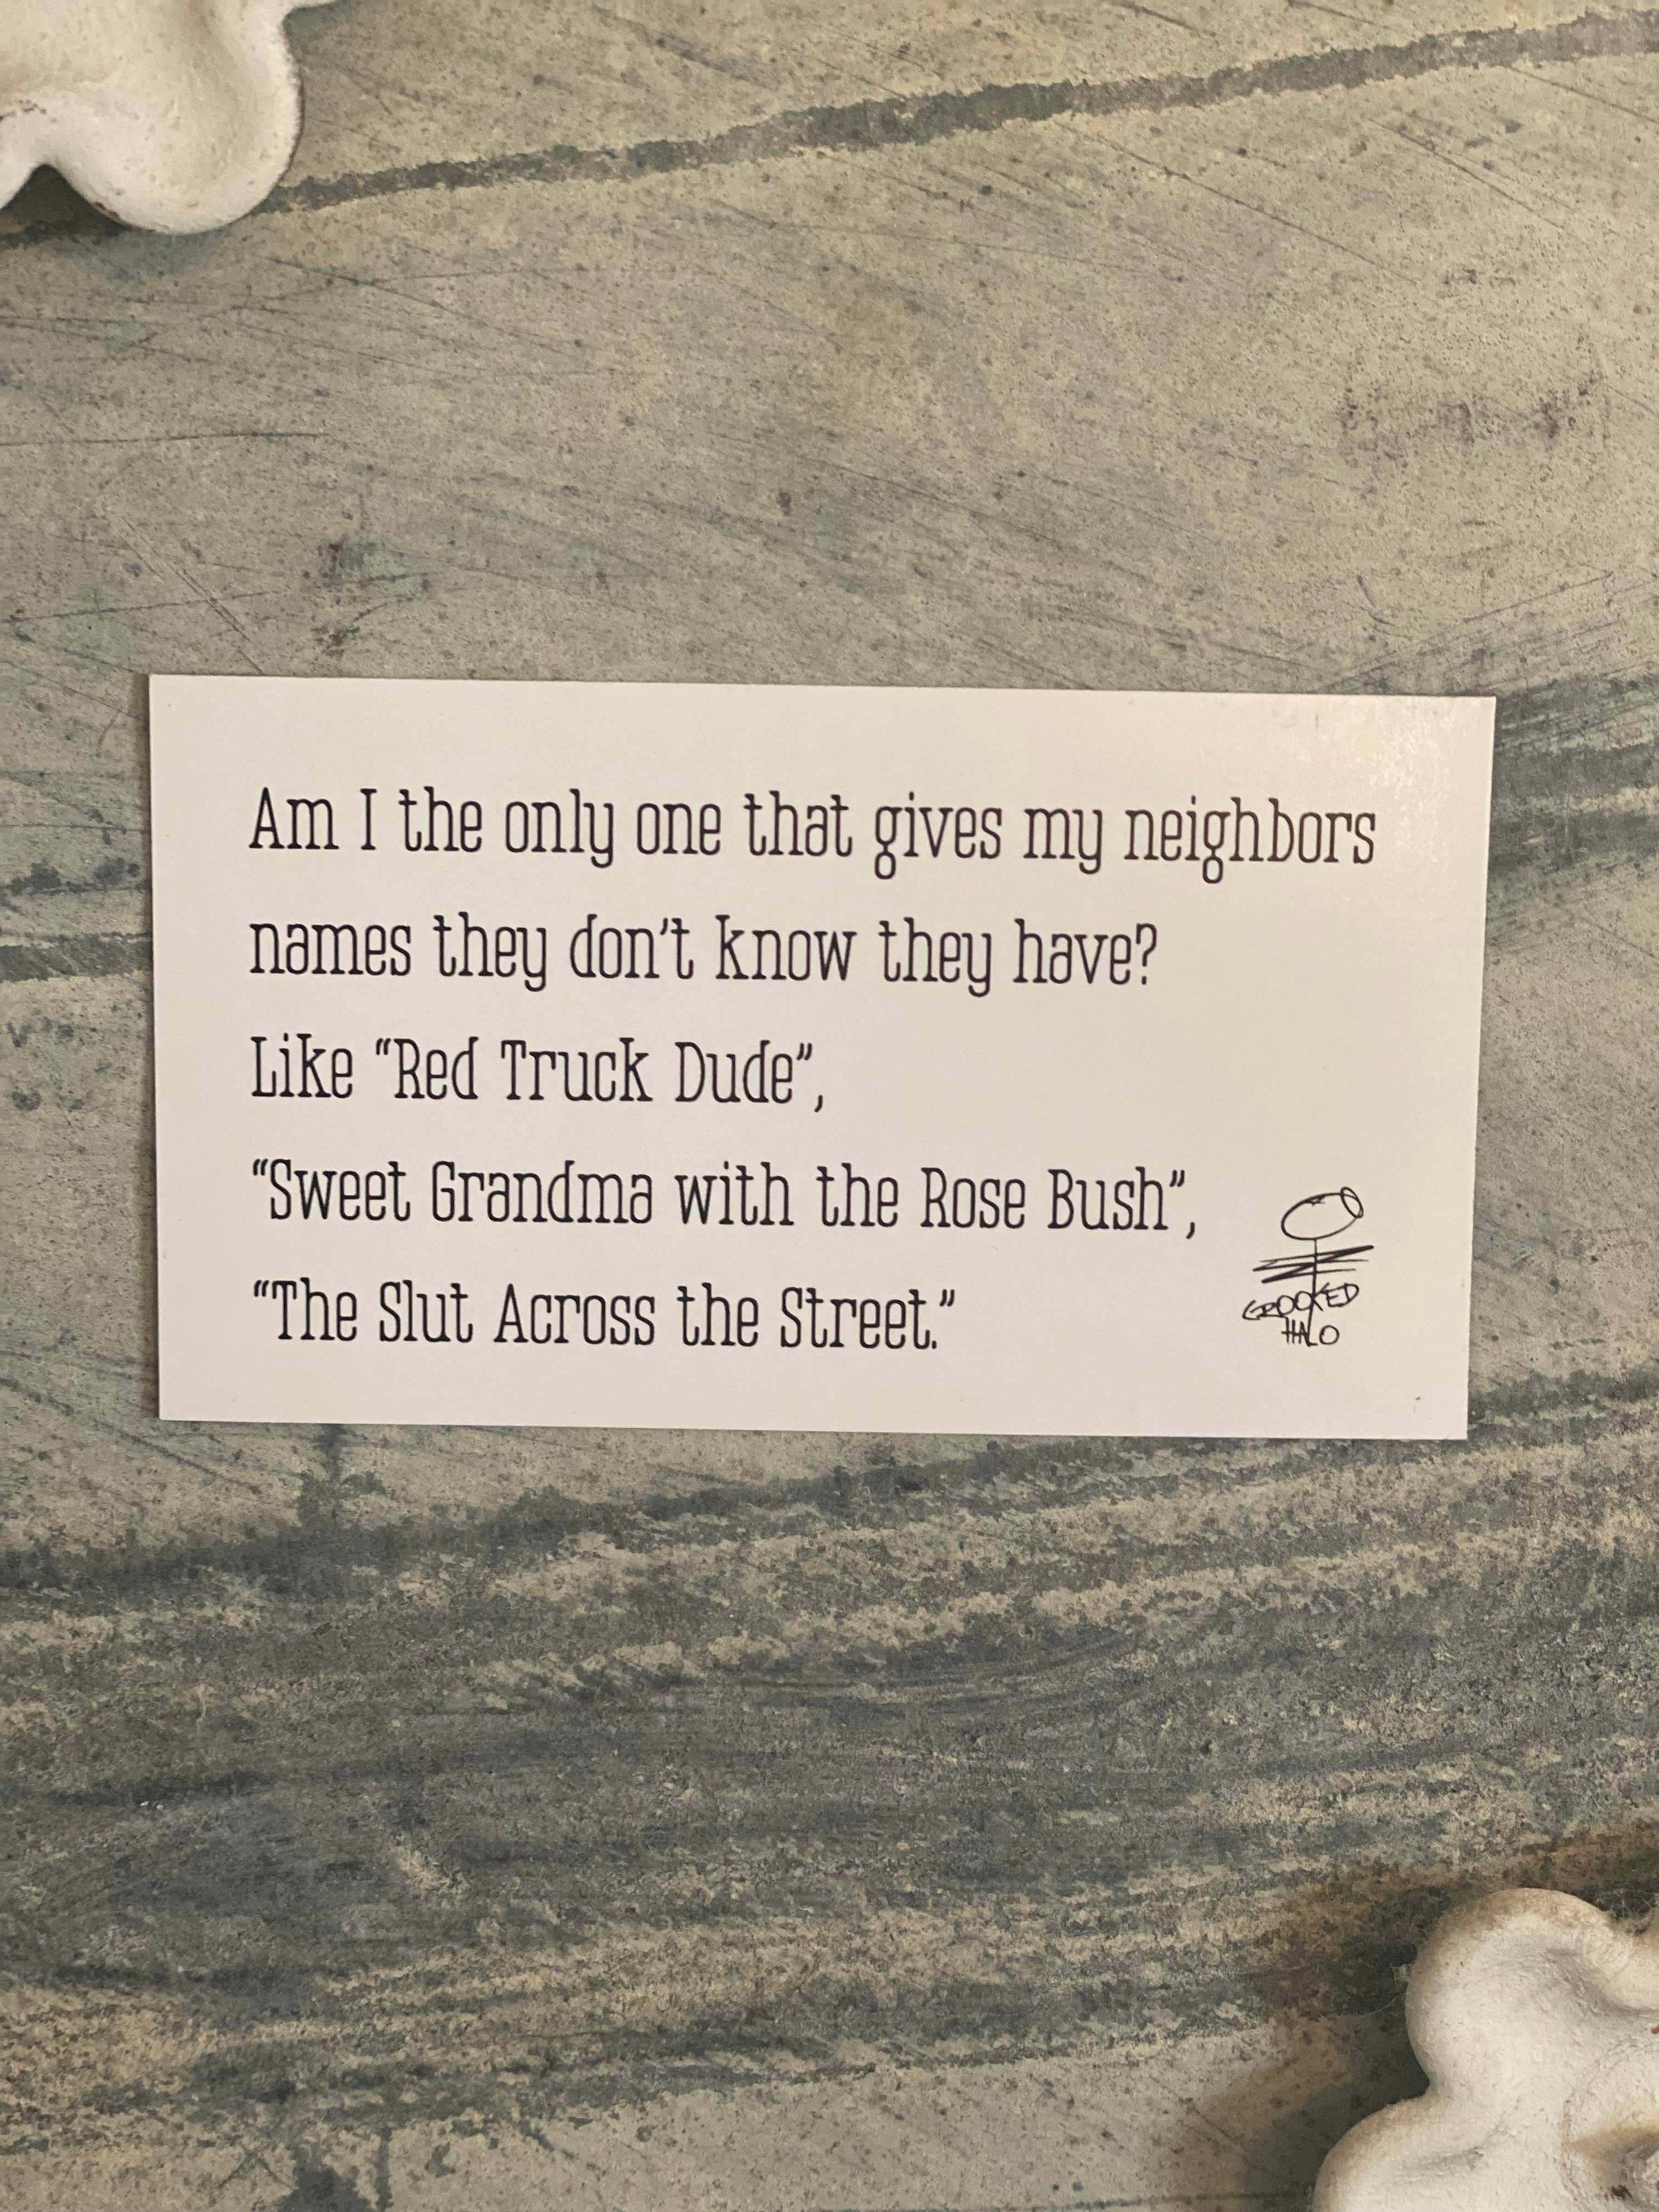 Am I the only one that gives my neighbors
names they don't know they have?
Like “Red Truck Dude”,
“Sweet Grandma with the Rose Bush”,
“The Slut Across the Street.”
CROOKED
HALO